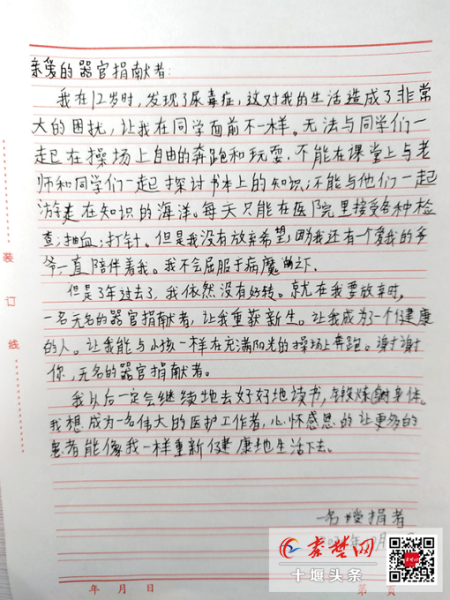 亲爱的器官捐献者:
我在12岁时,发现了尿毒症,这对我的生活造成了非常
大的困扰,让我在同学面前不一样。无法与同学们一
起在操场上自由的奔跑和玩耍,不能在课堂上与老
师和同学们一起探讨书本上的知识,不能与他们一起
游走在知识的海洋。每天只能在医院里接受各种检
查;抽血;打针。但是我没有放弃希望,因我还有一个爱我的爹
爹一直陪伴着我。我不会屈服于病魔之下.
但是3年过去了,我依然没有好转。就在我要放弃时,
一名无名的器官捐献者,让我重获新生。让我成为了一个健康
的人。让我能与小孩一样在充满阳光的操场上奔跑。谢谢
你,无名的器官捐献者。
我以后一定会继续地去好好地读书,锻炼身体。
我想成为一名伟大的医护工作者,心怀感恩的让更多的
患者能像我一样重新健康地生活下去。
一名受捐者
装订线
秦楚网
十堰头条
年 月 日
第 页